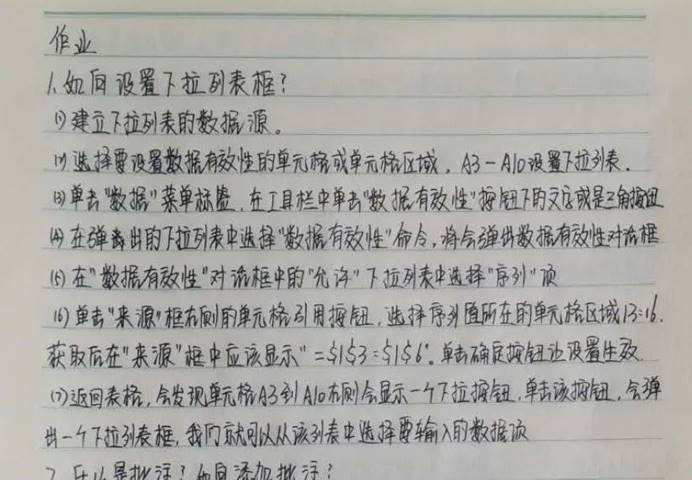 作业
1、如何设置下拉列表框?
(1)建立下拉列表的数据源。
(2)选择要设置数据有效性的单元格或单元格区域，A3-A10设置下拉列表.
(3)单击"数据"菜单标签，在工具栏中单击"数据有效性"按钮下的文字或是三角按钮
(4)在弹出的下拉列表中选择"数据有效性"命令，将会弹出数据有效性对话框
(5)在"数据有效性"对话框中的"允许"下拉列表中选择"序列"项
(6)单击"来源"框右侧的单元格引用按钮，选择序列值所在的单元格区域I3:I6.
获取后在"来源"框中应该显示"=$I$3:$I$6"。单击确定按钮让设置生效
(7)返回表格，会发现单元格A3到A10右侧会显示一个下拉按钮，单击该按钮，会弹
出一个下拉列表框，我们就可以从该列表中选择要输入的数据项
2、什么是批注?如何添加批注?